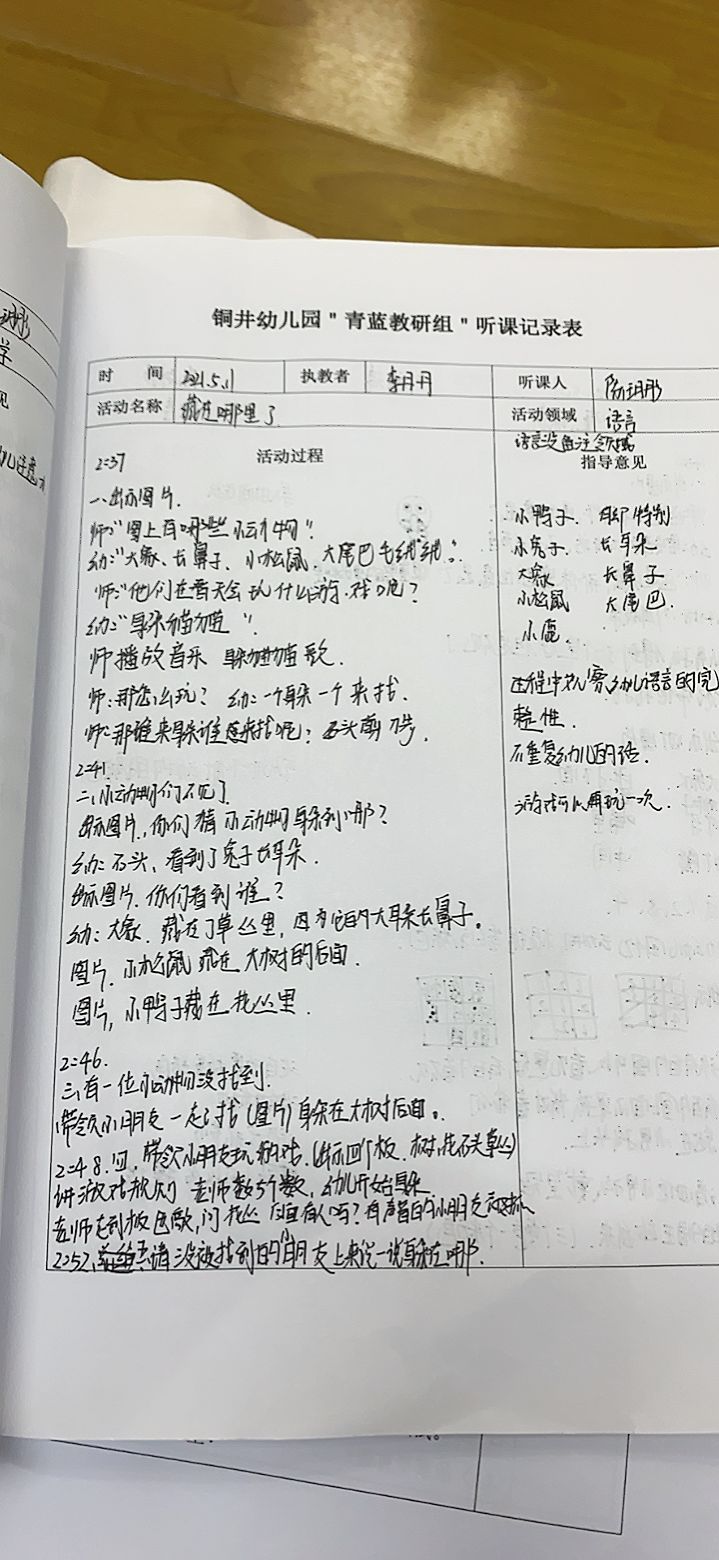 铜井幼儿园"青蓝教研组"听课记录表
时 间 2021.5.11 执教者 李丹丹 听课人
活动名称 藏在哪里了 活动领域 语言
2:37 活动过程
指导意见
一、出示图片.
师:"图上有哪些小动物".
幼:"大象、长鼻子、小松鼠.大尾巴毛绒绒。
师:"他们在春天会玩什么游戏呢?
幼:"躲猫猫".
师播放音乐 躲猫猫歌.
师:那怎么玩? 幼:一个躲一个来找.
师:那谁来躲谁来找呢? 石头剪刀步.
2:41
二、小动物们不见了
出示图片,你们猜小动物躲到哪?
幼:石头,看到了兔子长耳朵.
出示图片.你们看到谁?
幼:大象.藏在了草丛里,因为它的大耳朵长鼻子。
图片.小松鼠藏在大树的后面.
图片,小鸭子藏在花丛里.
2:46.
三、有一位小动物没找到.
带领小朋友一起找(图片)躲在大树后面。
2:48.四.带领小朋友玩游戏.(出示四个板.树,花石头草丛)
讲游戏规则 老师数5个数,幼儿开始躲
老师走到板 ,问花丛后面有人吗?有声音的小朋友
2:52. 请没被找到的小朋友上来说一说躲在哪.
小鸭子. 脚特别
小兔子. 长耳朵
大象 长鼻子
小松鼠 大尾巴.
小鹿.
过程中 幼儿语言的完
整性.
不重复幼儿的话.
游戏可以再玩一次.